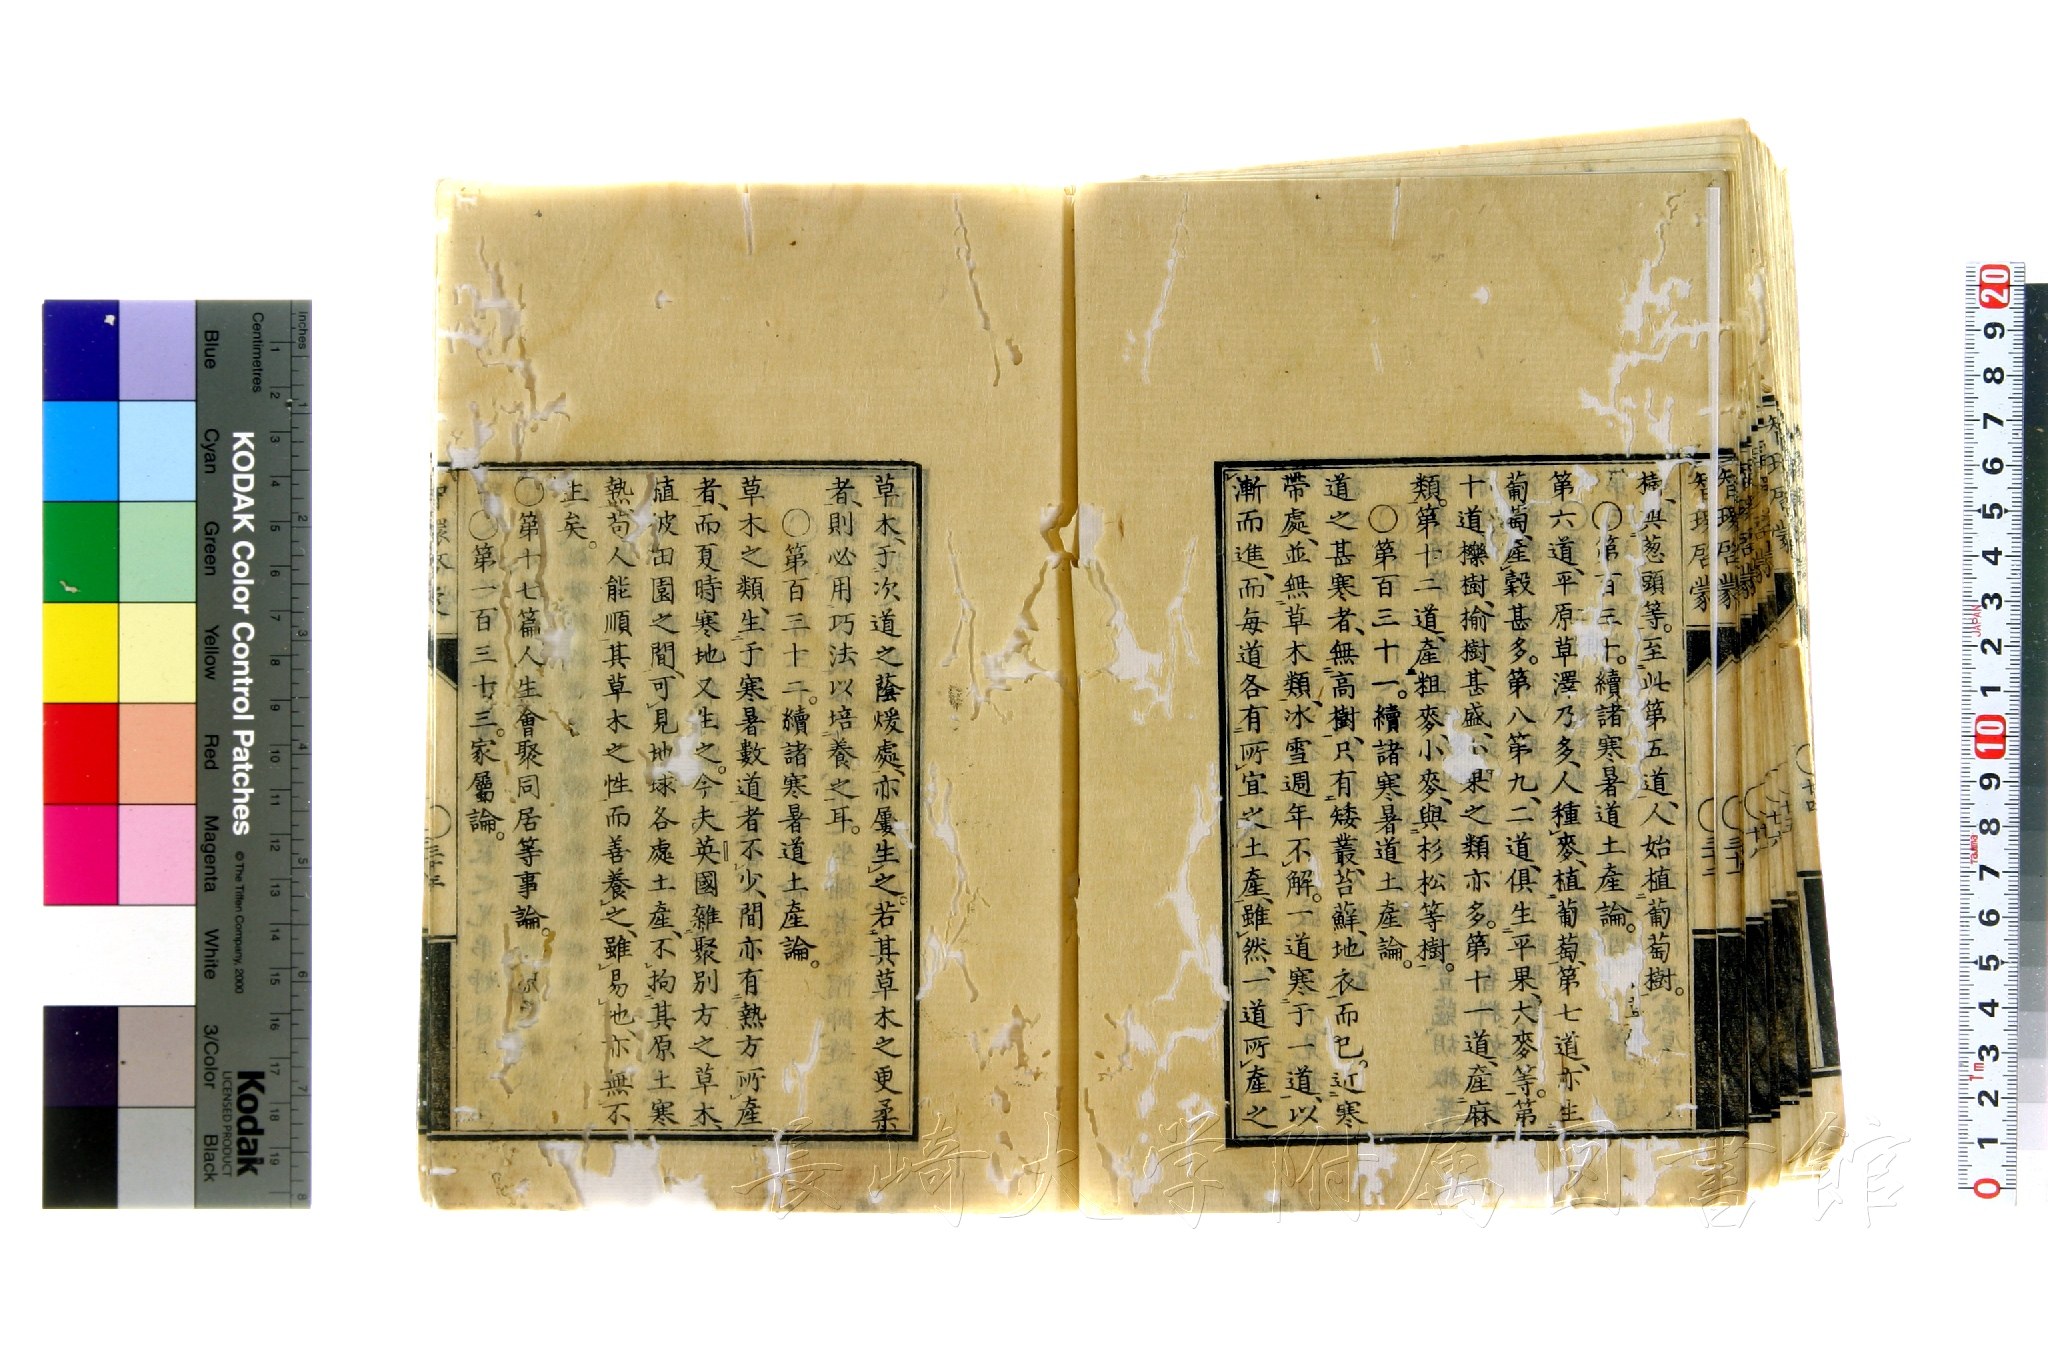 檎、與葱頭等。至此第五道、人始植葡萄樹。
○第一百三十。續諸寒暑道土產論。
第六道、平原草澤乃多、人種麥、植葡萄、第七道、亦生
葡萄、產穀甚多。第八第九、二道、俱生平果、大麥等。第
十道、櫟樹、榆樹、甚盛、菓之類亦多。第十一道、產麻
類。第十二道、產粗麥、小麥、與杉松等樹。
○第百三十一。續諸寒暑道土產論。
道之甚寒者、無高樹、只有矮叢、苔蘚、地衣而已。近寒
帶處、並無草木類、冰雪週年不解。一道寒于一道、以
漸而進、而每道各有所宜之土產、雖然、一道所產之
草木、于次道之蔭煖處、亦屢生之。若其草木之更柔
者、則必用巧法以培養之耳。
○第百三十二。續諸寒暑道土產論。
草木之類、生于寒暑數道者不少、間亦有熱方所產
者、而夏時寒地又生之。今夫英國雜聚別方之草木、
植彼田園之間、可見地球各處土產、不拘其原土寒
熱、苟人能順其草木之性而善養之、雖易地、亦無不
生矣。
○第十七篇人生會聚同居等事論。
○第一百三十三。家屬論。
智環啓蒙
智環啓蒙
KODAK Color Control Patches
© The Tiffen Company, 2000
Kodak
LICENSED PRODUCT
Blue Cyan Green Yellow Red Magenta White 3/Color Black
Inches
Centimetres
1 2 3 4 5 6 7 8
1 2 3 4 5 6 7 8 9 10 11 12 13 14 15 16 17 18 19
20 9 8 7 6 5 4 3 2 1 10 9 8 7 6 5 4 3 2 1 0
JAPAN
Tajima
1m
長崎大学附属図書館